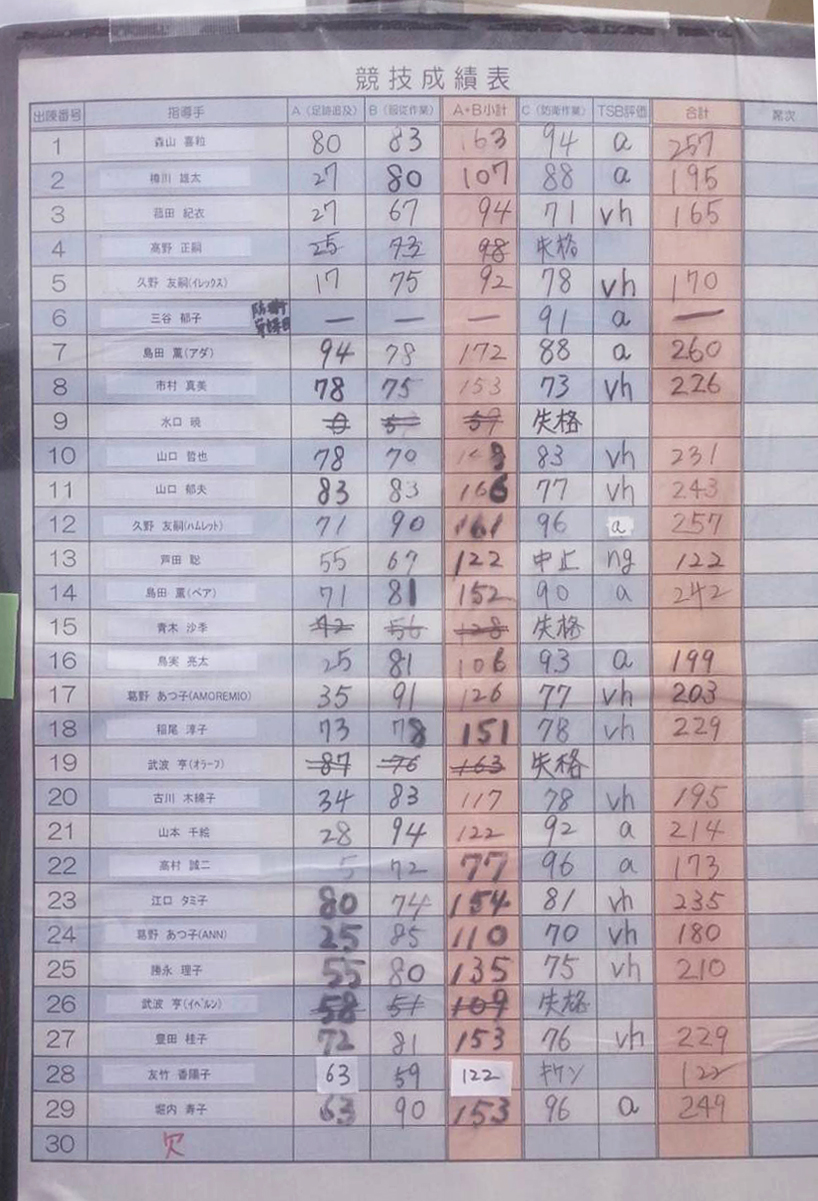 競技成績表
出陳番号 指導手 A（足跡追及） B（服従作業） A+B小計 C（防衛作業） TSB評価 合計 席次
1 森山 喜粒 80 83 163 94 a 257
2 樽川 雄太 27 80 107 88 a 195
3 菰田 紀衣 27 67 94 71 vh 165
4 高野 正嗣 25 73 98 失格
5 久野 友嗣(イレックス) 17 75 92 78 vh 170
6 三谷 郁子 防衛 — — — 91 a —
7 島田 薫(アダ) 94 78 172 88 a 260
8 市村 真美 78 75 153 73 vh 226
9 水口 暁 0 59 失格
10 山口 哲也 78 70 148 83 vh 231
11 山口 郁夫 83 83 166 77 vh 243
12 久野 友嗣(ハムレット) 71 90 161 96 a 257
13 芦田 聡 55 67 122 中止 ng 122
14 島田 薫(ベア) 71 81 152 90 a 242
15 青木 沙季 56 128 失格
16 鳥実 亮太 25 81 106 93 a 199
17 葛野 あつ子(AMOREMIO) 35 91 126 77 vh 203
18 稲尾 淳子 73 78 151 78 vh 229
19 武波 亨(オラーフ) 87 76 163 失格
20 古川 木綿子 34 83 117 78 vh 195
21 山本 千絵 28 94 122 92 a 214
22 高村 誠二 5 72 77 96 a 173
23 江口 タミ子 80 74 154 81 vh 235
24 葛野 あつ子(ANN) 25 85 110 70 vh 180
25 勝永 理子 55 80 135 75 vh 210
26 武波 亨(イベルン) 58 51 109 失格
27 豊田 桂子 72 81 153 76 vh 229
28 友竹 香陽子 63 59 122 キケン 122
29 堀内 寿子 63 90 153 96 a 249
30 欠